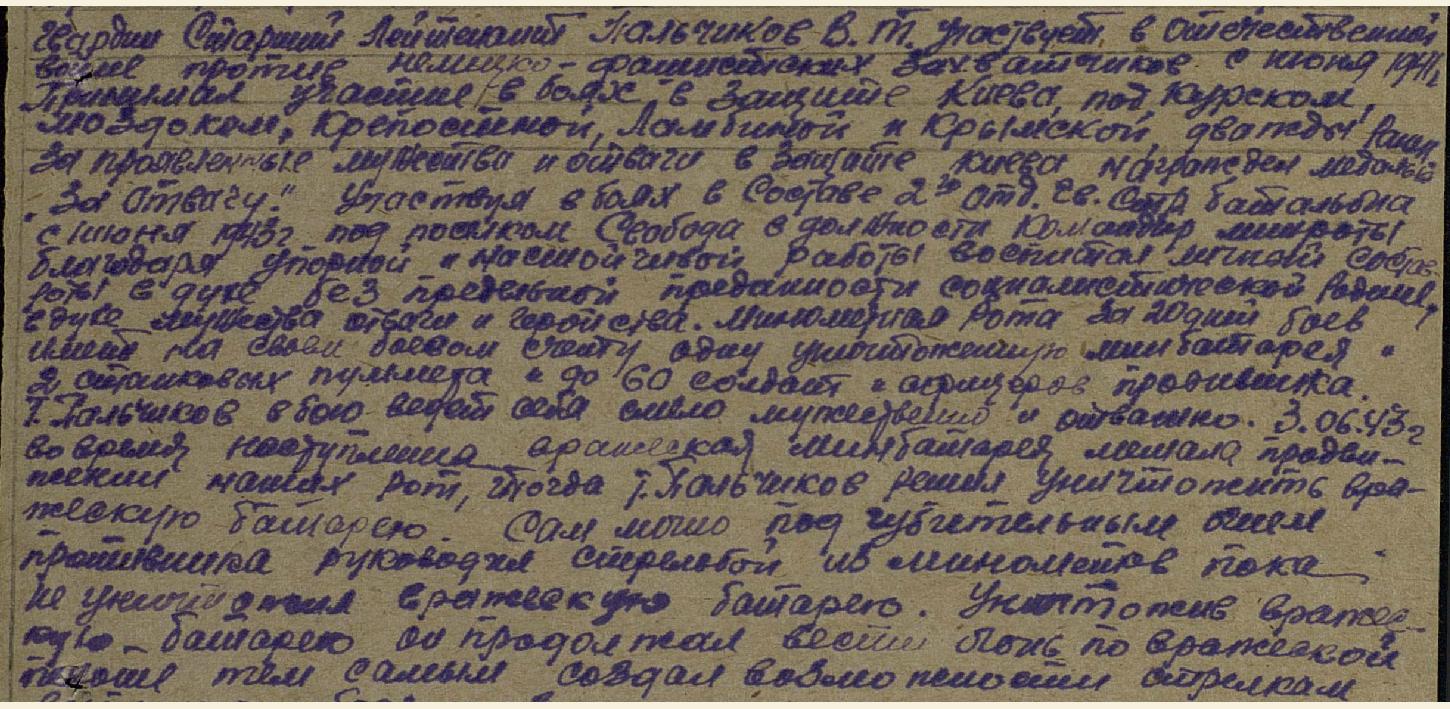 Гвардии Старший Лейтенант Пальчиков В.Т. участвует в отечественной
войне против немецко-фашистских захватчиков с июня 1941г.
Принимал участие в боях в защите Киева, под Курском,
Моздоком, Крепостной, Ламбиной и Крымской дважды ранен.
За проявленные мужества и отваги в защите Киева награжден медалью
"За отвагу". Участвуя в боях в составе 2го отд. Гв. Стр батальона
с июня 1943г под поселком Свобода в должности командир минроты
благодаря упорной и настойчивой работы воспитал личный состав
роты в духе без предельной преданности социалистической Родине,
в духе мужества отваги и геройства. Минометная рота за 20 дней боев
имеет на своем боевом счету одну уничтоженную минбатарея и
2 станковых пулмета и до 60 солдат и офицеров противника.
Т. Пальчиков в бою ведет себя смело мужественно и отважно. 3.06.43г
во время наступления вражеская минбатарея мешала продви-
жении наших рот, тогда т. Пальчиков решил уничтожить вра-
жескую батарею. Сам лично под губительным огнем
противника руководил стрельбой из минометов пока
не уничтожил вражескую батарею. Уничтожив вражес-
кую батарею он продолжал вести огонь по вражеской
пехоте тем самым создал возможности стрелкам